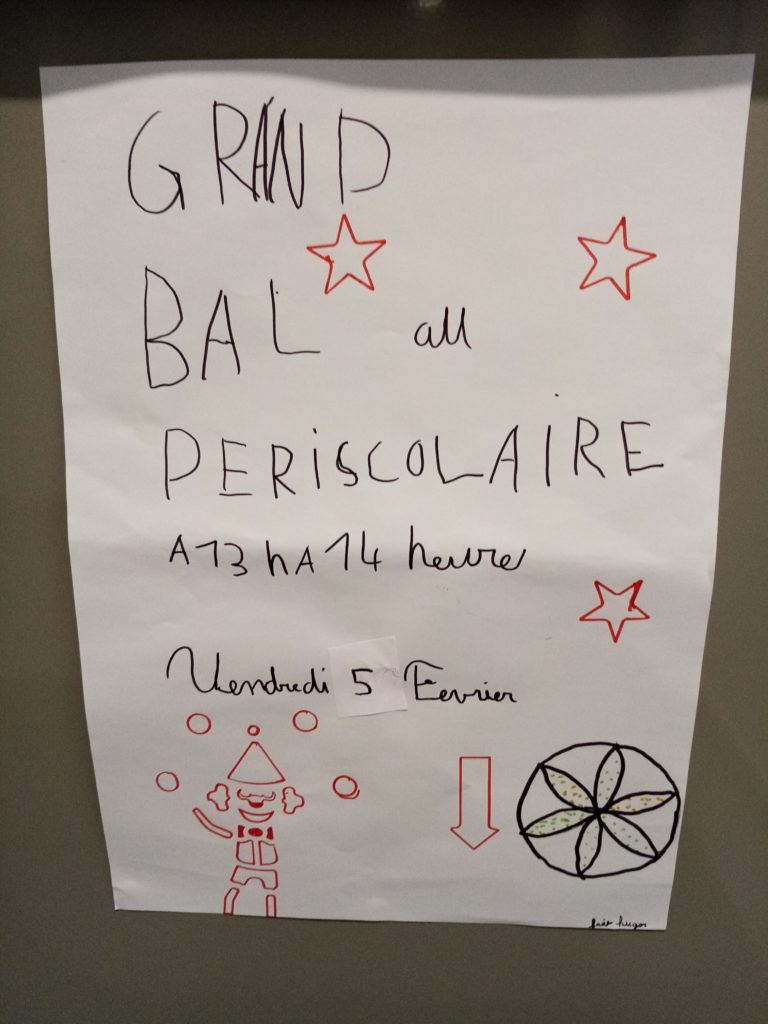 GRAND
BAL au
PERiSCOLAIRE
A 13 h A 14 heure
Vendredi 5 Fevrier